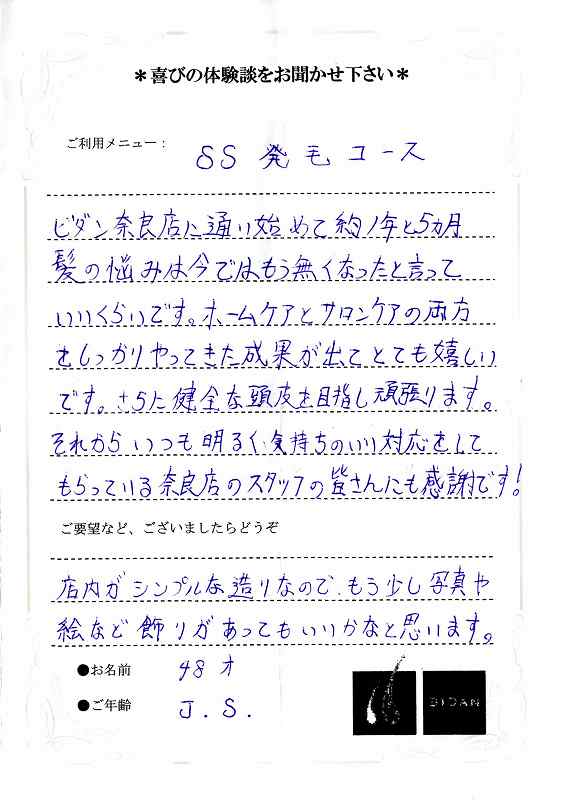 ＊喜びの体験談をお聞かせ下さい＊
ご利用メニュー： SS 発毛コース
ビダン奈良店に通い始めて約1年と5ヵ月
髪の悩みは今ではもう無くなったと言って
いいくらいです。ホームケアとサロンケアの両方
をしっかりやってきた成果が出てとても嬉しい
です。さらに健全な頭皮を目指し頑張ります。
それからいつも明るく気持ちのいい対応をして
もらっている奈良店のスタッフの皆さんにも感謝です！
ご要望など、ございましたらどうぞ
店内がシンプルな造りなので、もう少し写真や
絵など飾りがあってもいいかなと思います。
●お名前 48才
●ご年齢 J.S.
BIDAN